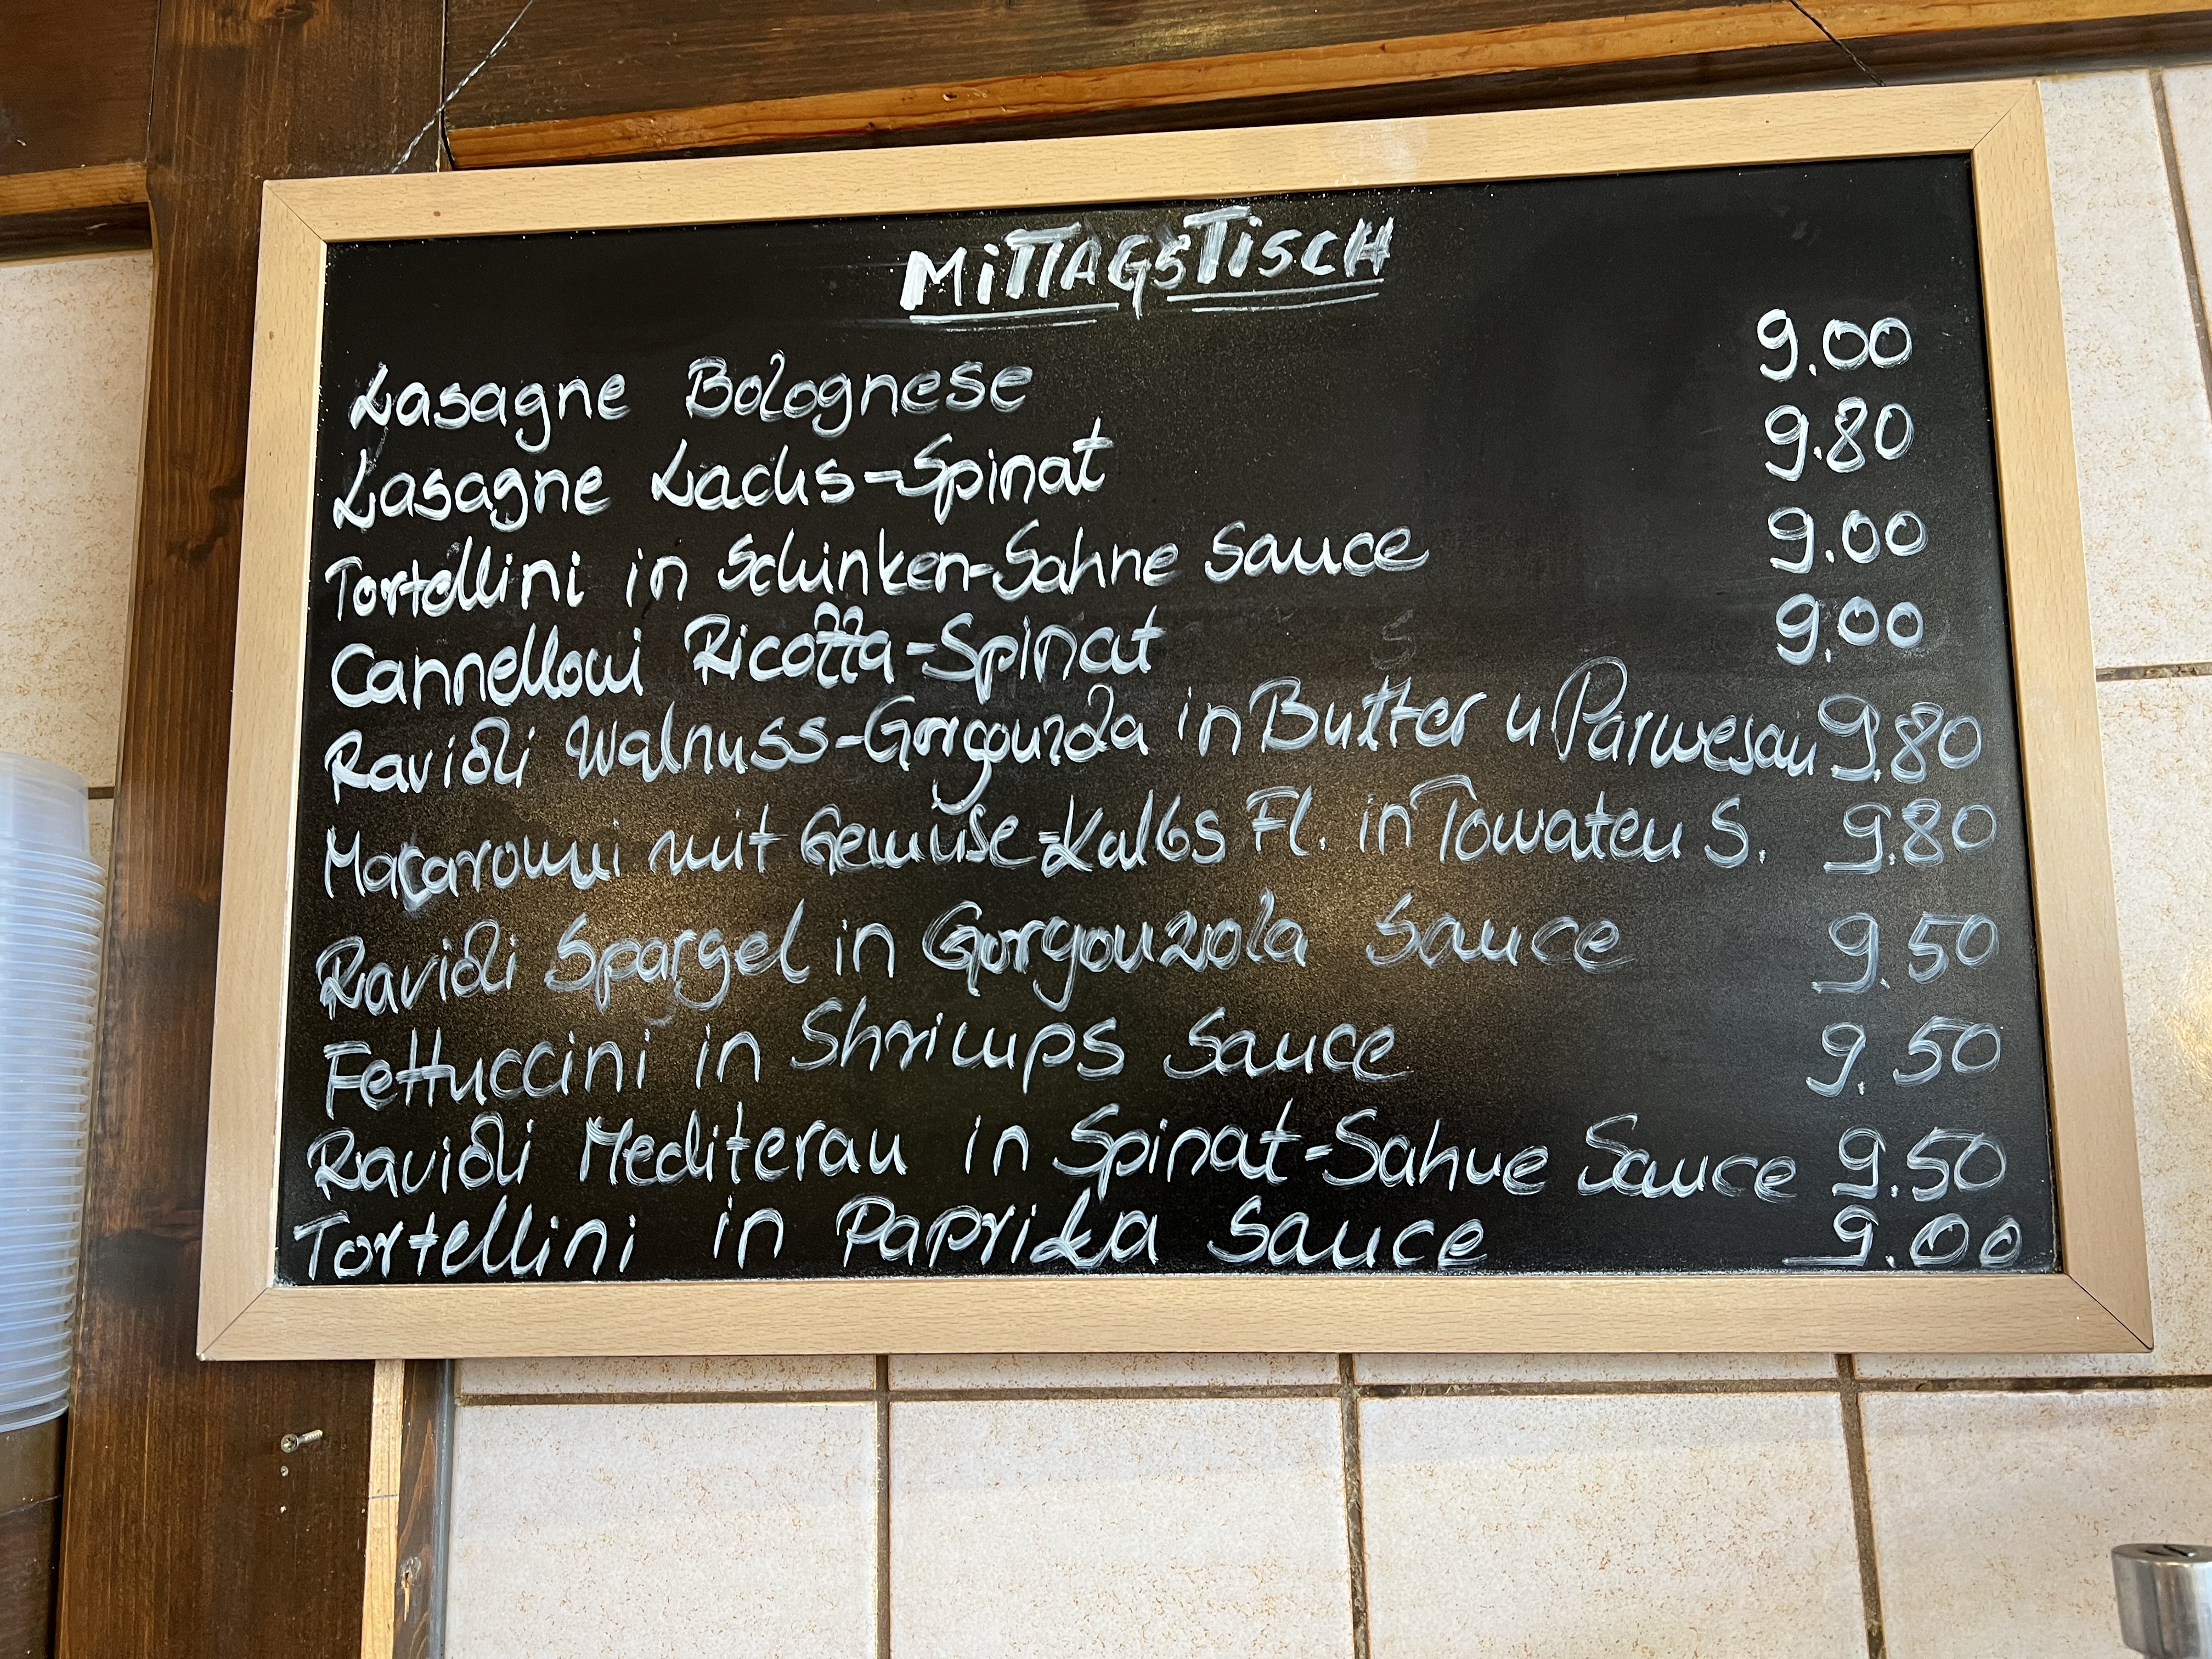 MiTTAGSTiSCH
Lasagne Bolognese 9.00
Lasagne Lachs-Spinat 9.80
Tortellini in Schinken-Sahne Sauce 9.00
Cannelloni Ricotta-Spinat 9.00
Ravioli Walnuss-Gorgonzola in Butter u Parmesan 9.80
Makaronni mit Gemüse-Kalbs Fl. in Tomaten S. 9.80
Ravioli Spargel in Gorgonzola Sauce 9.50
Fettuccini in Shrimps Sauce 9.50
Ravioli Mediteran in Spinat-Sahne Sauce 9.50
Tortellini in Paprika Sauce 9.00